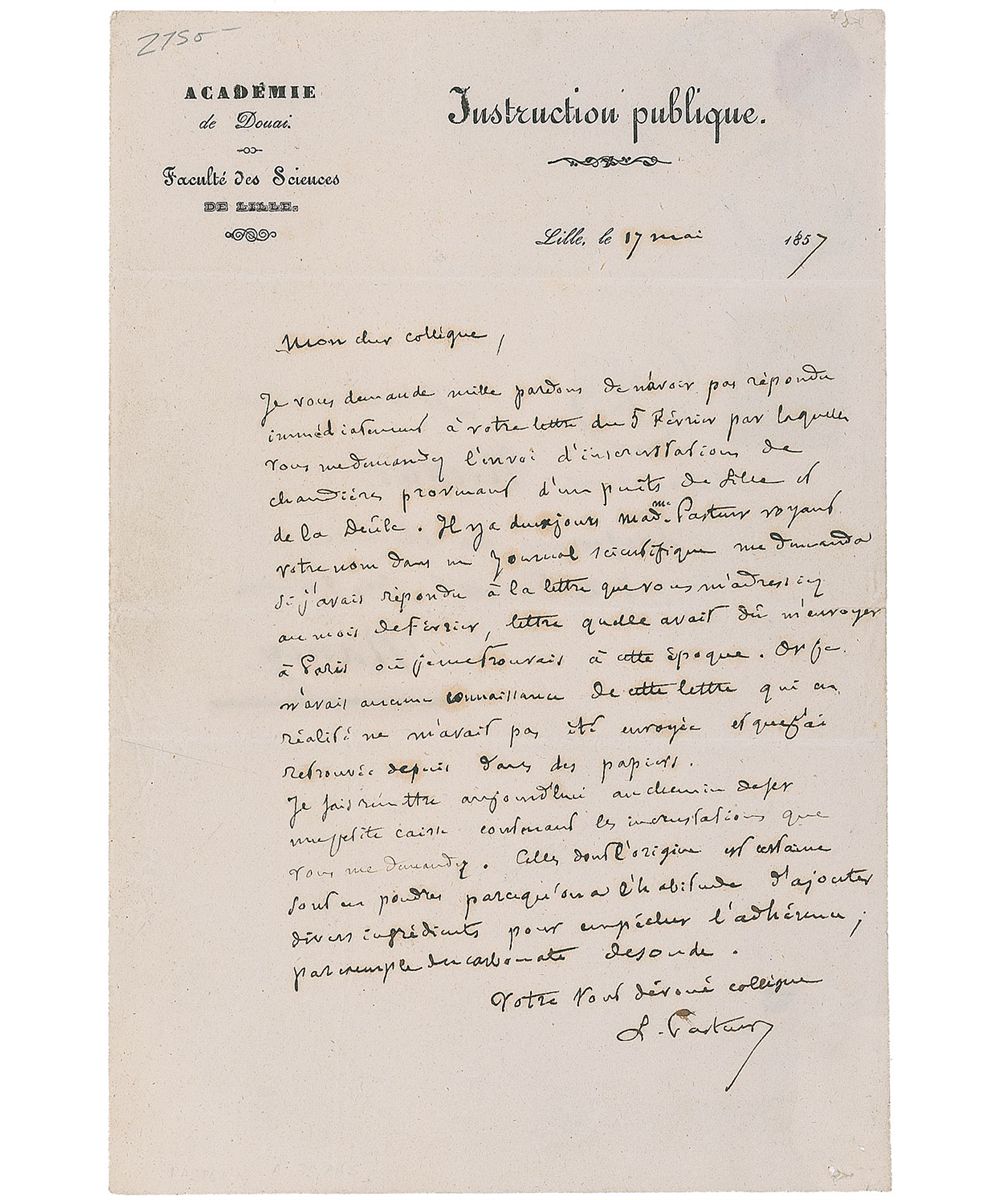 2750 -
ACADÉMIE
de Douai.
Faculté des Sciences
DE LILLE.
Instruction publique.
Lille, le 17 mai 1857
Mon cher collègue,
Je vous demande mille pardons de n'avoir pas répondu
immédiatement à votre lettre du 5 Février par laquelle
vous me demandez l'envoi d'incrustations de
chaudières provenant d'un puits de Lille et
de la Deûle. Il y a deux jours Mad.me Pasteur voyant
votre nom dans un journal scientifique me demanda
si j'avais répondu à la lettre que vous m'adressiez
au mois de Février, lettre quelle avait dû m'envoyer
à Paris où je me trouvais à cette époque. Or je
n'avais aucune connaissance de cette lettre qui en
réalité ne m'avait pas été envoyée et que j'ai
retrouvée depuis dans des papiers.
Je fais remettre aujourd'hui au chemin de fer
une petite caisse contenant les incrustations que
vous me demandez. Celles dont l'origine est certaine
sont en poudres parcequ'on a l'habitude d'ajouter
divers ingrédients pour empêcher l'adhérence;
par exemple du carbonate de soude.
Votre tout dévoué collègue
L. Pasteur